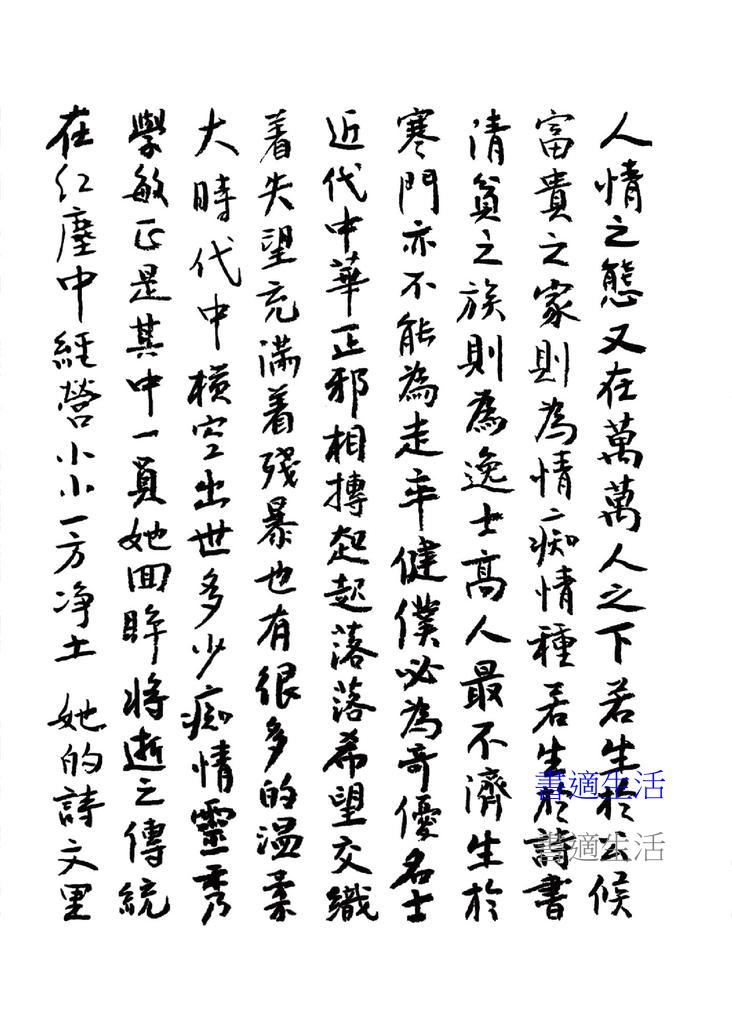 人情之態又在萬萬人之下若生於公候
富貴之家則為情痴情種若生於詩書
清貧之族則為逸士高人最不濟生於
寒門亦不能為走卒健僕必為奇優名士
近代中華正邪相摶起起落落希望交織
着失望充滿着殘暴也有很多的溫柔
大時代中橫空出世多少痴情靈秀
學敏正是其中一員她回眸將逝之傳統
在紅塵中經營小小一方净土 她的詩文里
書適生活
書適生活